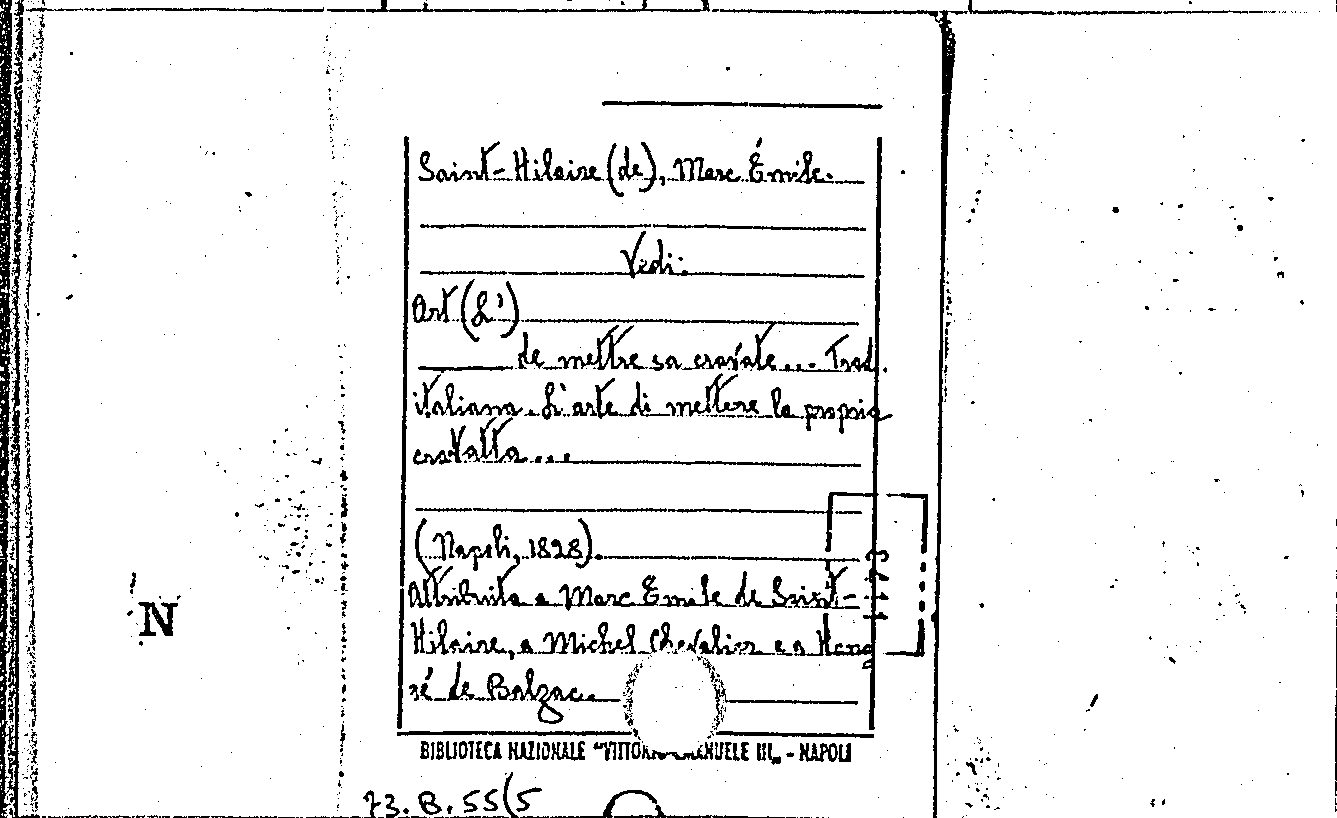 Saint-Hilaire (de), Marc Émile.
Vedi:
Art (L')
de mettre sa cravate... Trad.
italiana. L'arte di mettere la propria
cravatta...
(Napoli, 1828).
Attribuita a Marc Emile de Saint-
Hilaire, a Michel Chevalier e a Hono
ré de Balzac.
BIBLIOTECA NAZIONALE "VITTORIO EMANUELE III„ - NAPOLI
73.B.55(5
N
1173